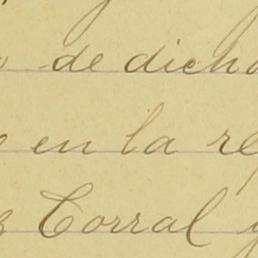 de dicho
en la re
Corral y